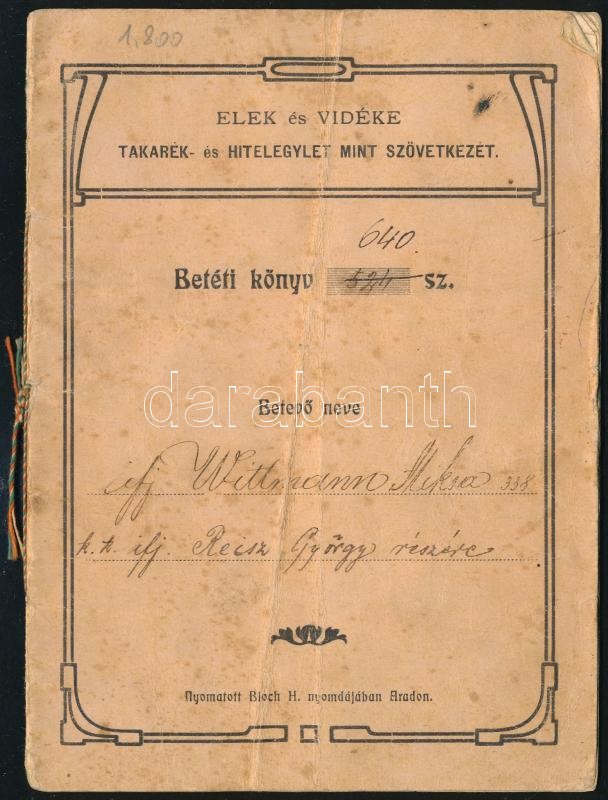 1.800
ELEK és VIDÉKE
TAKARÉK- és HITELEGYLET MINT SZÖVETKEZET.
640.
Betéti könyv 524 sz.
darabanth
Betevő neve
ifj Wittmann 338
h. k. ifj. Reisz György részére
Nyomatott Bloch H. nyomdájában Aradon.